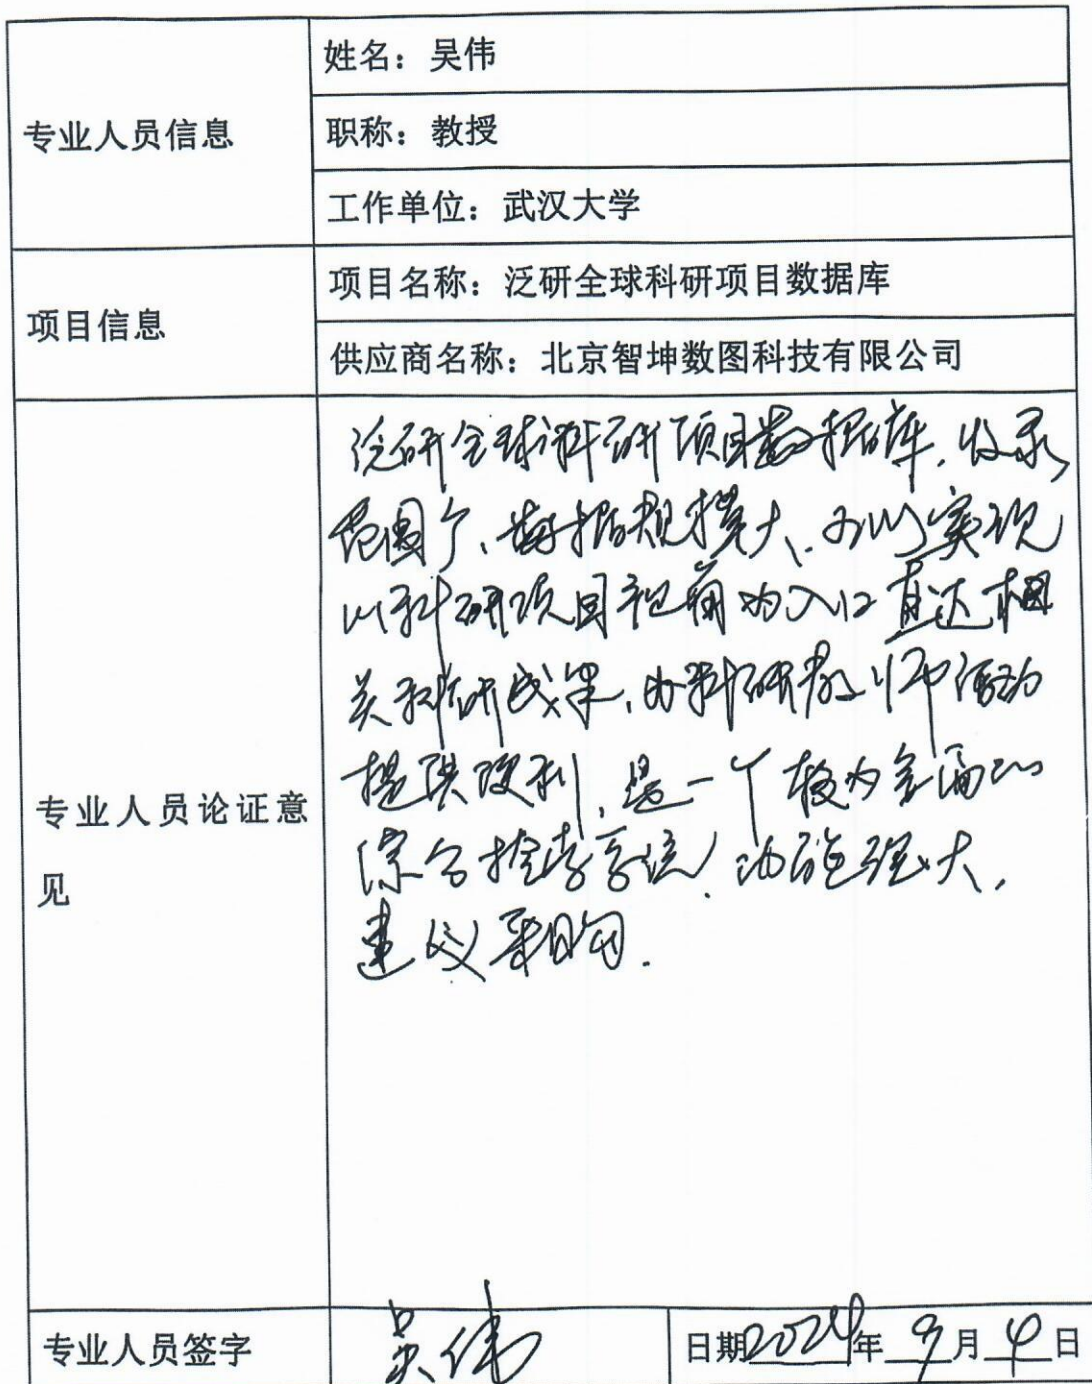 专业人员信息
姓名：吴伟
职称：教授
工作单位：武汉大学
项目信息
项目名称：泛研全球科研项目数据库
供应商名称：北京智坤数图科技有限公司
专业人员论证意
见
泛研全球科研项目数据库，收录
范围广、数据规模大、可以实现
以科研项目视角为入口直达相
关科研成果，为科研教师活动
提供便利，是一个较为全面的
综合检索系统，功能强大，
建议采购.
专业人员签字
吴伟
日期2024年9月4日